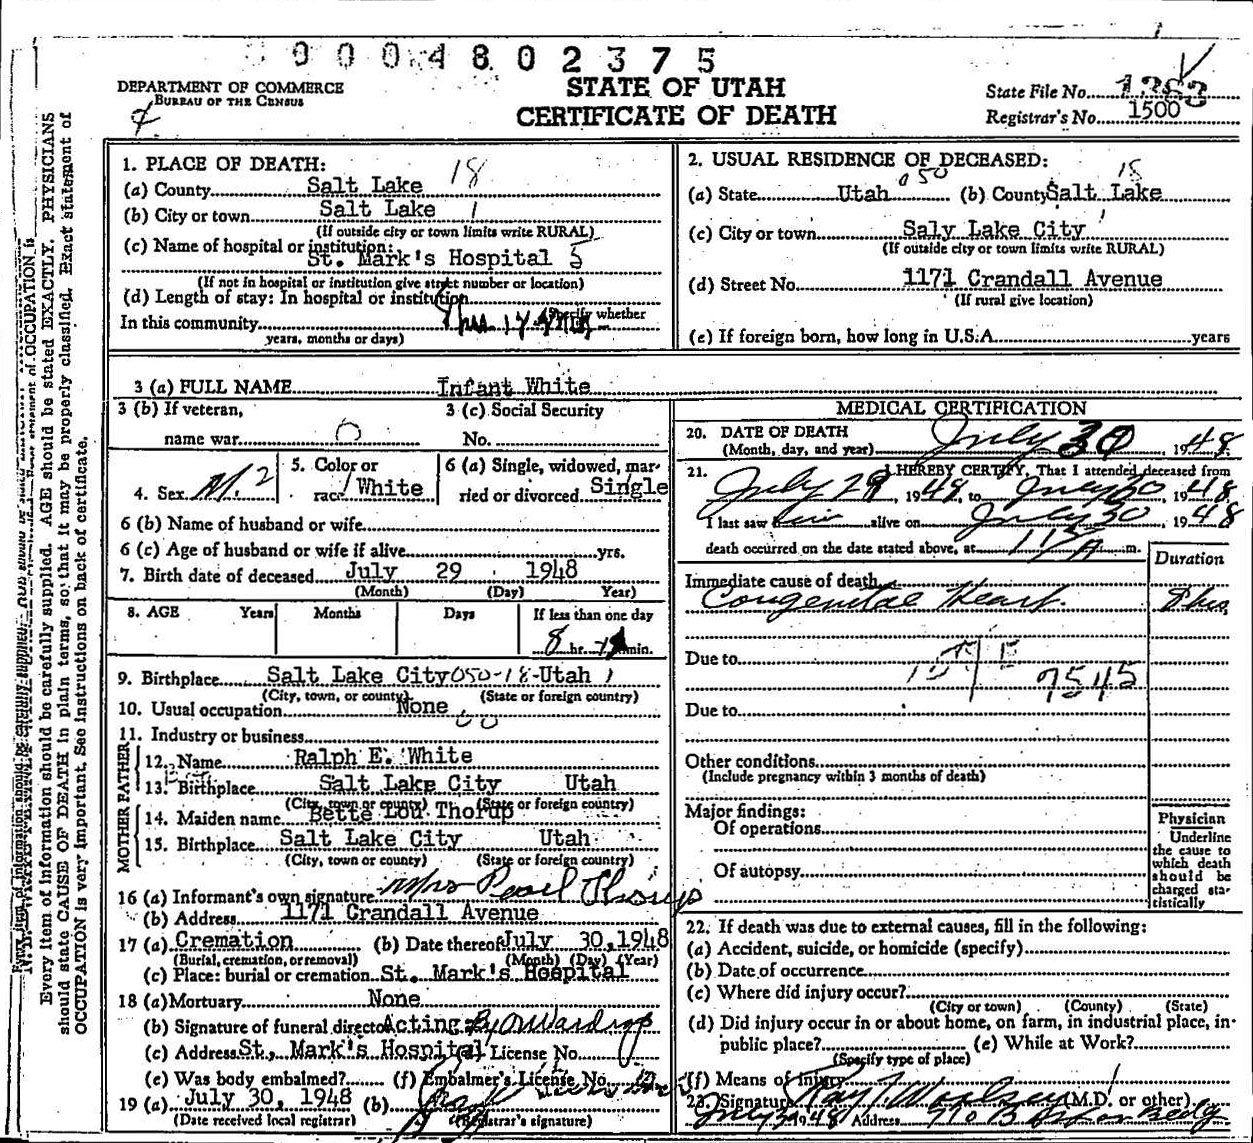 0004802375
DEPARTMENT OF COMMERCE
BUREAU OF THE CENSUS
STATE OF UTAH
CERTIFICATE OF DEATH
State File No.
Registrar's No. 1500
Every item of information should be carefully supplied. AGE should be stated EXACTLY. PHYSICIANS
should state CAUSE OF DEATH in plain terms, so that it may be properly classified. Exact statement of
OCCUPATION is very important. See instructions on back of certificate.
1. PLACE OF DEATH: 18
(a) County Salt Lake
(b) City or town Salt Lake 1
(If outside city or town limits write RURAL)
(c) Name of hospital or institution:
St. Mark's Hospital 5
(If not in hospital or institution give street number or location)
(d) Length of stay: In hospital or institution
(Specify whether
In this community
years, months or days)
2. USUAL RESIDENCE OF DECEASED:
(a) State Utah 050 (b) County Salt Lake 18
(c) City or town Saly Lake City
(If outside city or town limits write RURAL)
(d) Street No. 1171 Crandall Avenue
(If rural give location)
(e) If foreign born, how long in U.S.A. years
3 (a) FULL NAME Infant White
3 (b) If veteran,
name war 0
3 (c) Social Security
No.
4. Sex M. 2
5. Color or
race White
6 (a) Single, widowed, mar-
ried or divorced Single
6 (b) Name of husband or wife
6 (c) Age of husband or wife if alive yrs.
7. Birth date of deceased July 29 1948
(Month) (Day) Year)
8. AGE Years Months Days If less than one day
8 hr. min.
9. Birthplace Salt Lake City 050-18-Utah 1
(City, town, or county) (State or foreign country)
10. Usual occupation None
11. Industry or business
FATHER
12. Name Ralph E. White
13. Birthplace Salt Lake City Utah
(City, town or county) (State or foreign country)
MOTHER
14. Maiden name Bette Lou Thorup
15. Birthplace Salt Lake City Utah
(City, town or county) (State or foreign country)
16 (a) Informant's own signature Mrs Pearl Thorup
(b) Address 1171 Crandall Avenue
17 (a) Cremation (b) Date thereof July 30, 1948
(Burial, cremation, or removal) (Month) (Day) (Year)
(c) Place: burial or cremation St. Mark's Hospital
18 (a) Mortuary None
(b) Signature of funeral director Acting: By
(c) Address St. Mark's Hospital (d) License No.
(e) Was body embalmed? (f) Embalmer's License No.
19 (a) July 30, 1948 (b)
(Date received local registrar) (Registrar's signature)
MEDICAL CERTIFICATION
20. DATE OF DEATH
(Month, day, and year) July 30, 1948.
21. I HEREBY CERTIFY, That I attended deceased from
July 29, 1948, to July 30, 1948
I last saw him alive on July 30, 1948
death occurred on the date stated above, at A m.
Duration
Immediate cause of death
Congenital Heart.
Due to 157E
7545
Due to
Other conditions
(Include pregnancy within 3 months of death)
Major findings:
Of operations
Of autopsy
Physician
Underline
the cause to
which death
should be
charged sta-
tistically
22. If death was due to external causes, fill in the following:
(a) Accident, suicide, or homicide (specify)
(b) Date of occurrence
(c) Where did injury occur?
(City or town) (County) (State)
(d) Did injury occur in or about home, on farm, in industrial place, in
public place? (e) While at Work?
(Specify type of place)
(f) Means of Injury
23. Signature (M.D. or other)
July 30 1948 Address